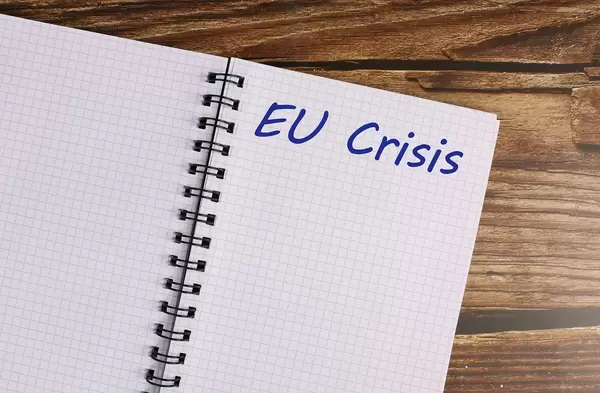 EU Crisis